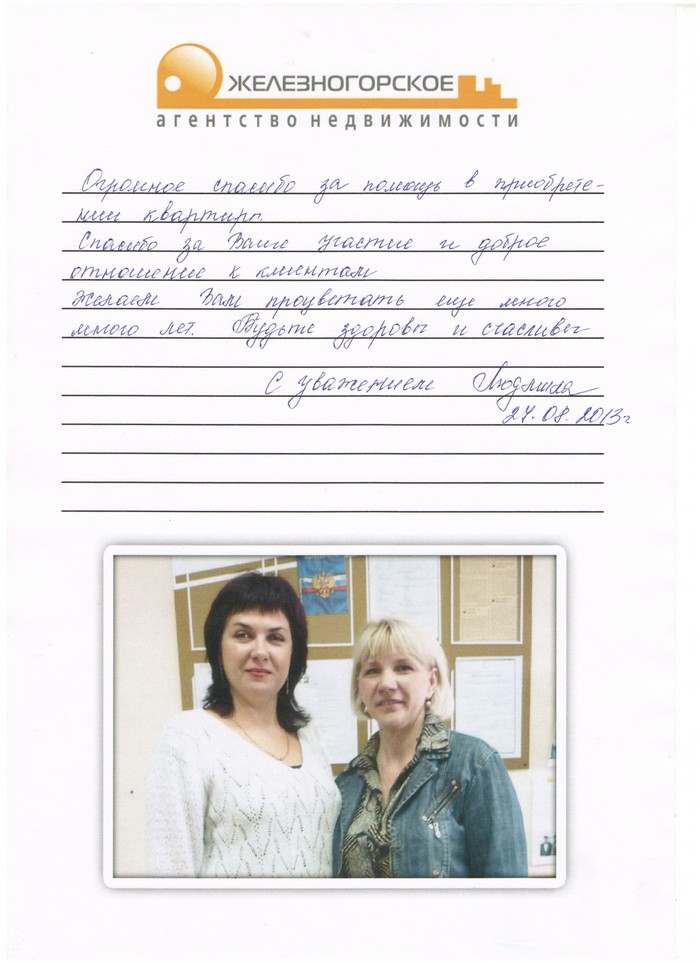 ЖЕЛЕЗНОГОРСКОЕ
агентство недвижимости
Огромное спасибо за помощь в приобрете-
нии квартиры.
Спасибо за Ваше участие и доброе
отношение к клиентам
Желаем Вам процветать еще много
много лет. Будьте здоровы и счастливы
С уважением Людмила
27.08.2013г